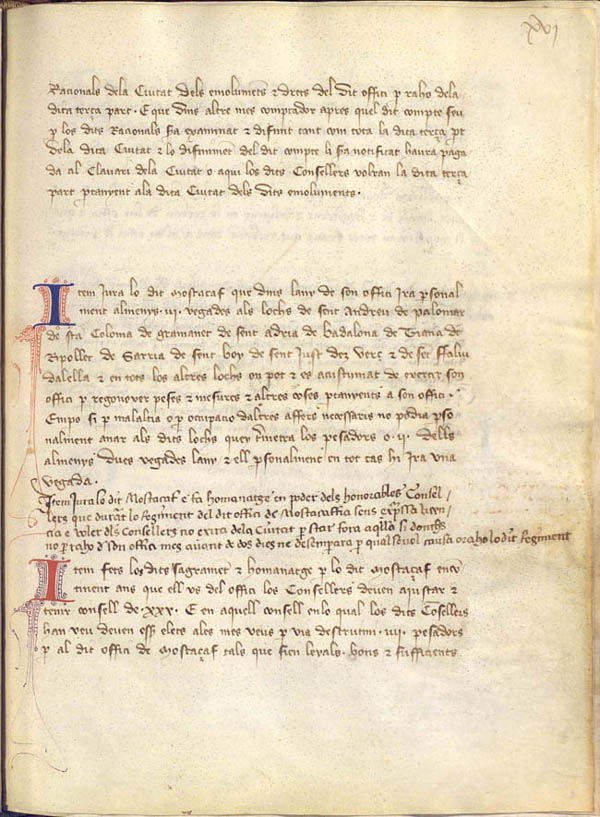 xvj
Racionals dela Ciutat dels emoluments & drets del dit offici p raho dela
dita terça part · E que dins altre mes comptador apres quel dit compte seu
p los dits Racionals sia examinat & difinit tant com tota la dita terça pt
dela dita Ciutat & lo difiniment del dit compte li sia notificat haura paga
da al Clavari dela Ciutat o aqui los dits Consellers volran la dita terça
part ptanyent ala dita Ciutat dels dits emoluments ·
Item Jura lo dit Mostaçaf que dins lany de son offici Ira psonal
ment almenys · iii · vegades als lochs de sent Andreu de palomar
de sta Coloma de gramanet de sent adria de badalona de Tiana de
Ripollet de Sarria de sent boy de sent Just dez verç & de set ffaliu
dalella & en tots los altres lochs on pot & es acustumat de exercir son
offici p regonexer peses & mesures & altres coses ptanyents a son offici ·
Empo si p malaltia o p ocupacio daltres affers necessaris no podia pso
nalment anar als dits lochs quey tmetra los pesadors o · ii · dells
almenys dues vegades lany & ell psonalment en tot cas hi Ira una
vegada ·
Item Jura lo dit Mostaçaf e fa homanatge en poder dels honorables Consel-
lers que durant lo Regiment del dit offici de Mostaçaffia sens expssa licen
cia e voler dls Consellers no exira dela Ciutat p star fora aqlla si donchs
no p raho dson offici mes auant de dos dies ne desempara p qualsevol causa o raho lo dit Regiment
Item fets los dits sagrament & homanatge p lo dit Mostaçaf enco
tinent ans que ell us del offici los Consellers deven ajustar &
tenir consell de · xxx · E en aquell consell en lo qual los dits Cosellers
han veu deven esser elets ales mes veus p via descrutini · iiii · pesadors
p al dit offici de Mostaçaf tals que sien leyals · bons & sufficients